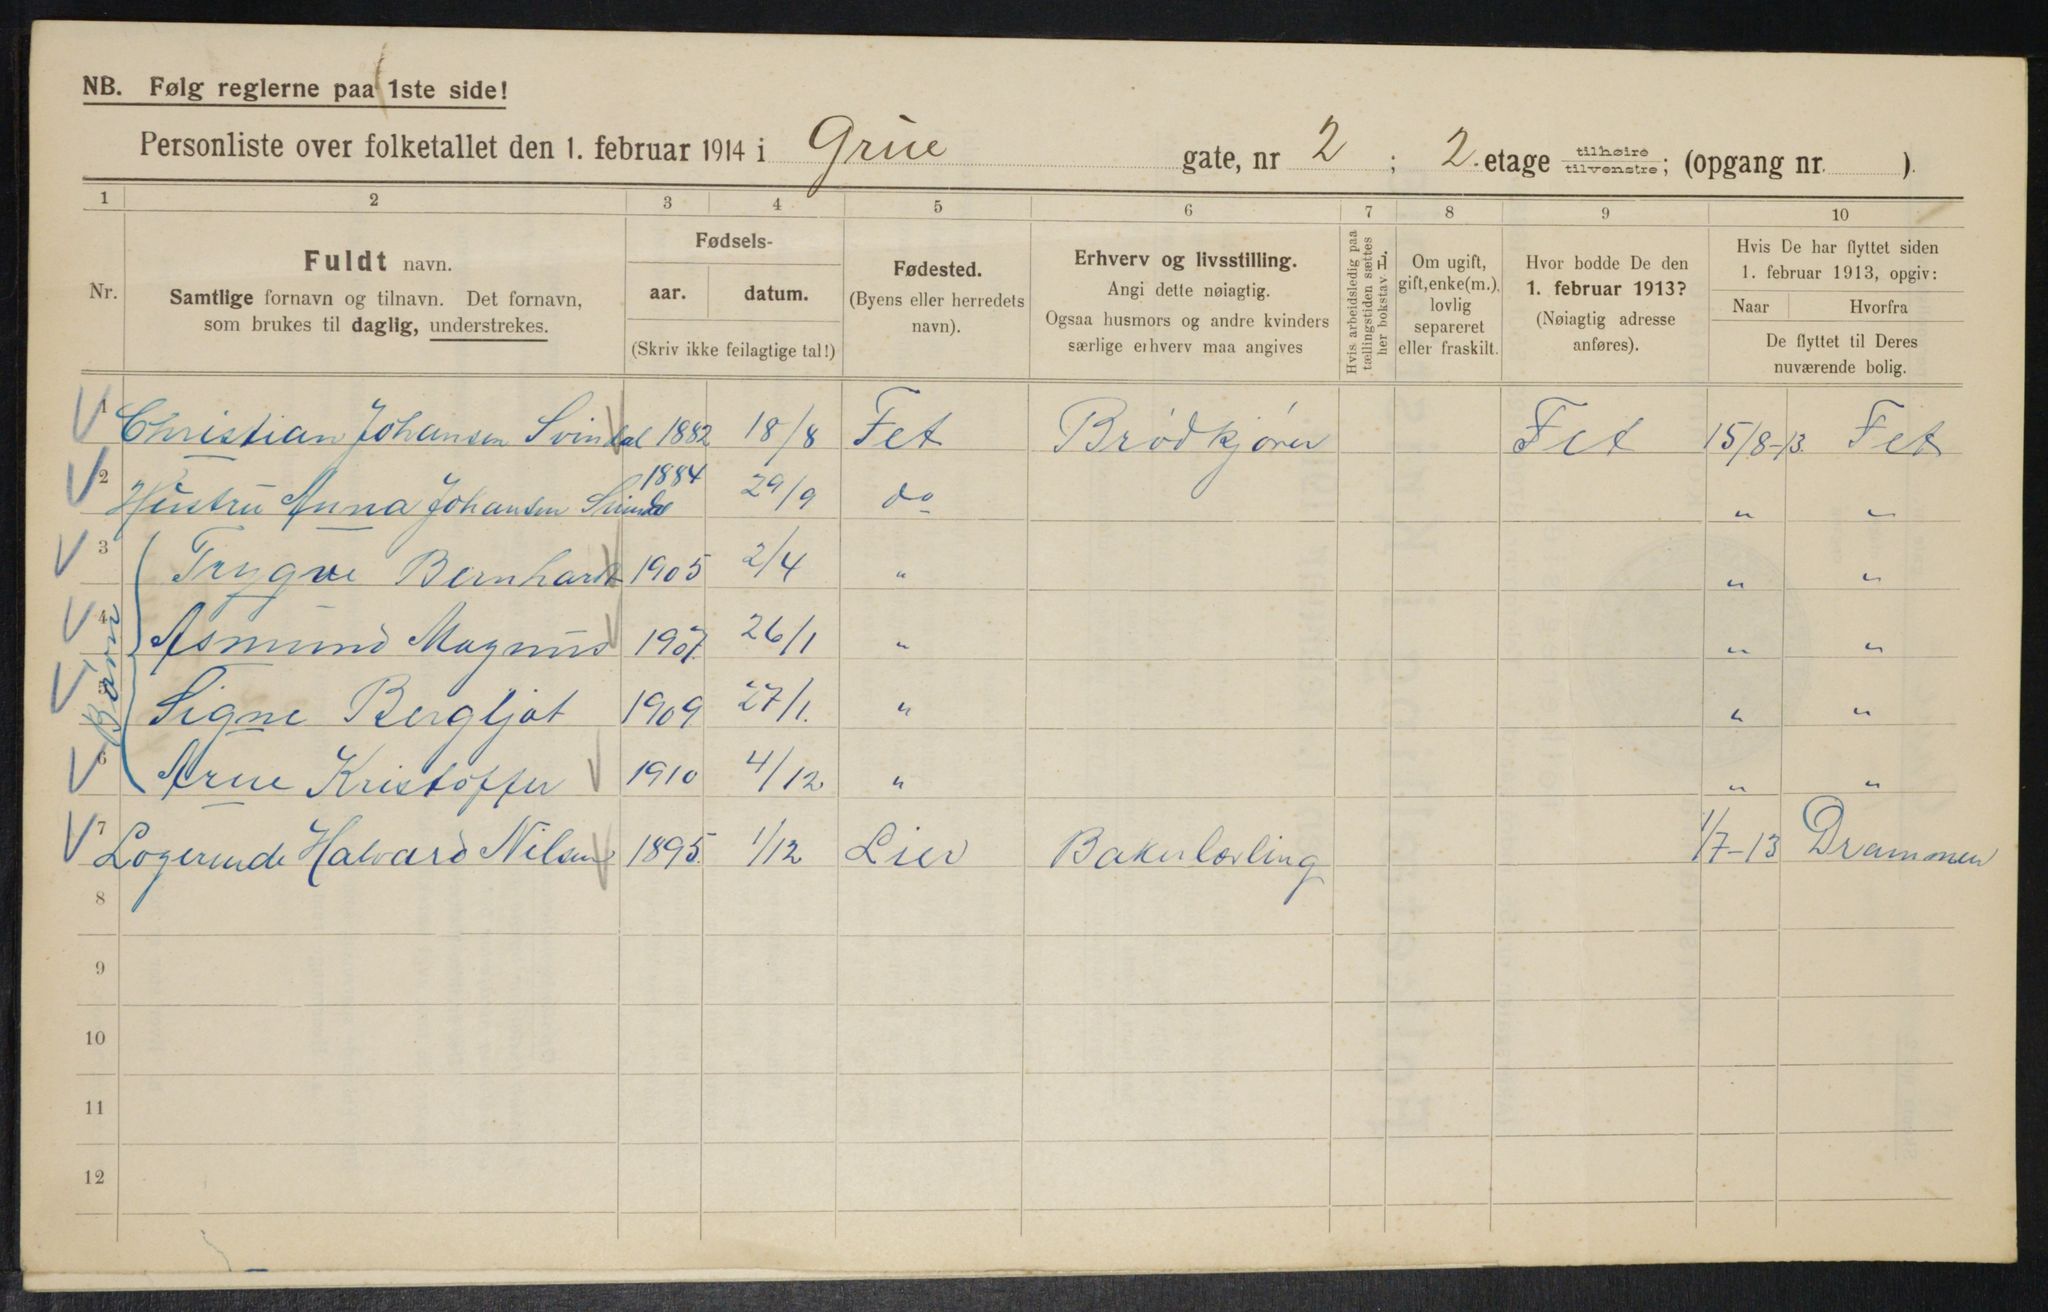 NB. Følg reglerne paa 1ste side!
Personliste over folketallet den 1. februar 1914 i Grüe gate, nr 2 ; 2. etage tilhøire tilvenstre; (opgang nr. ).
1 2 3 4 5 6 7 8 9 10
Nr.
Fuldt navn.
Samtlige fornavn og tilnavn. Det fornavn,
som brukes til daglig, understrekes.
Fødsels-
aar. datum.
(Skriv ikke feilagtige tal!)
Fødested.
(Byens eller herredets
navn).
Erhverv og livsstilling.
Angi dette nøiagtig.
Ogsaa husmors og andre kvinders
særlige erhverv maa angives
Hvis arbeidsledig paa
tællingstiden sættes
her bokstav L.
Om ugift,
gift, enke(m.),
lovlig
separeret
eller fraskilt.
Hvor bodde De den
1. februar 1913?
(Nøiagtig adresse
anføres).
Hvis De har flyttet siden
1. februar 1913, opgiv:
Naar Hvorfra
De flyttet til Deres
nuværende bolig.
1 Christian Johansen Svindal 1882 18/8 Fet Brödkjörer Fet 15/8-13. Fet
2 Hüstrü Anna Johansen Svindal 1884 29/9 do " "
Börn
3 Trygve Bernhardt 1905 2/4 " " "
4 Asmünd Magnüs 1907. 26/1 " " "
5 Signe Bergljot 1909 27/1. " " "
6 Arne Kristoffer 1910 4/12. " " "
7 Logerende Halvard Nilsen 1895. 1/12 Lier Bakerlærling 1/7-13 Drammen
8
9
10
11
12